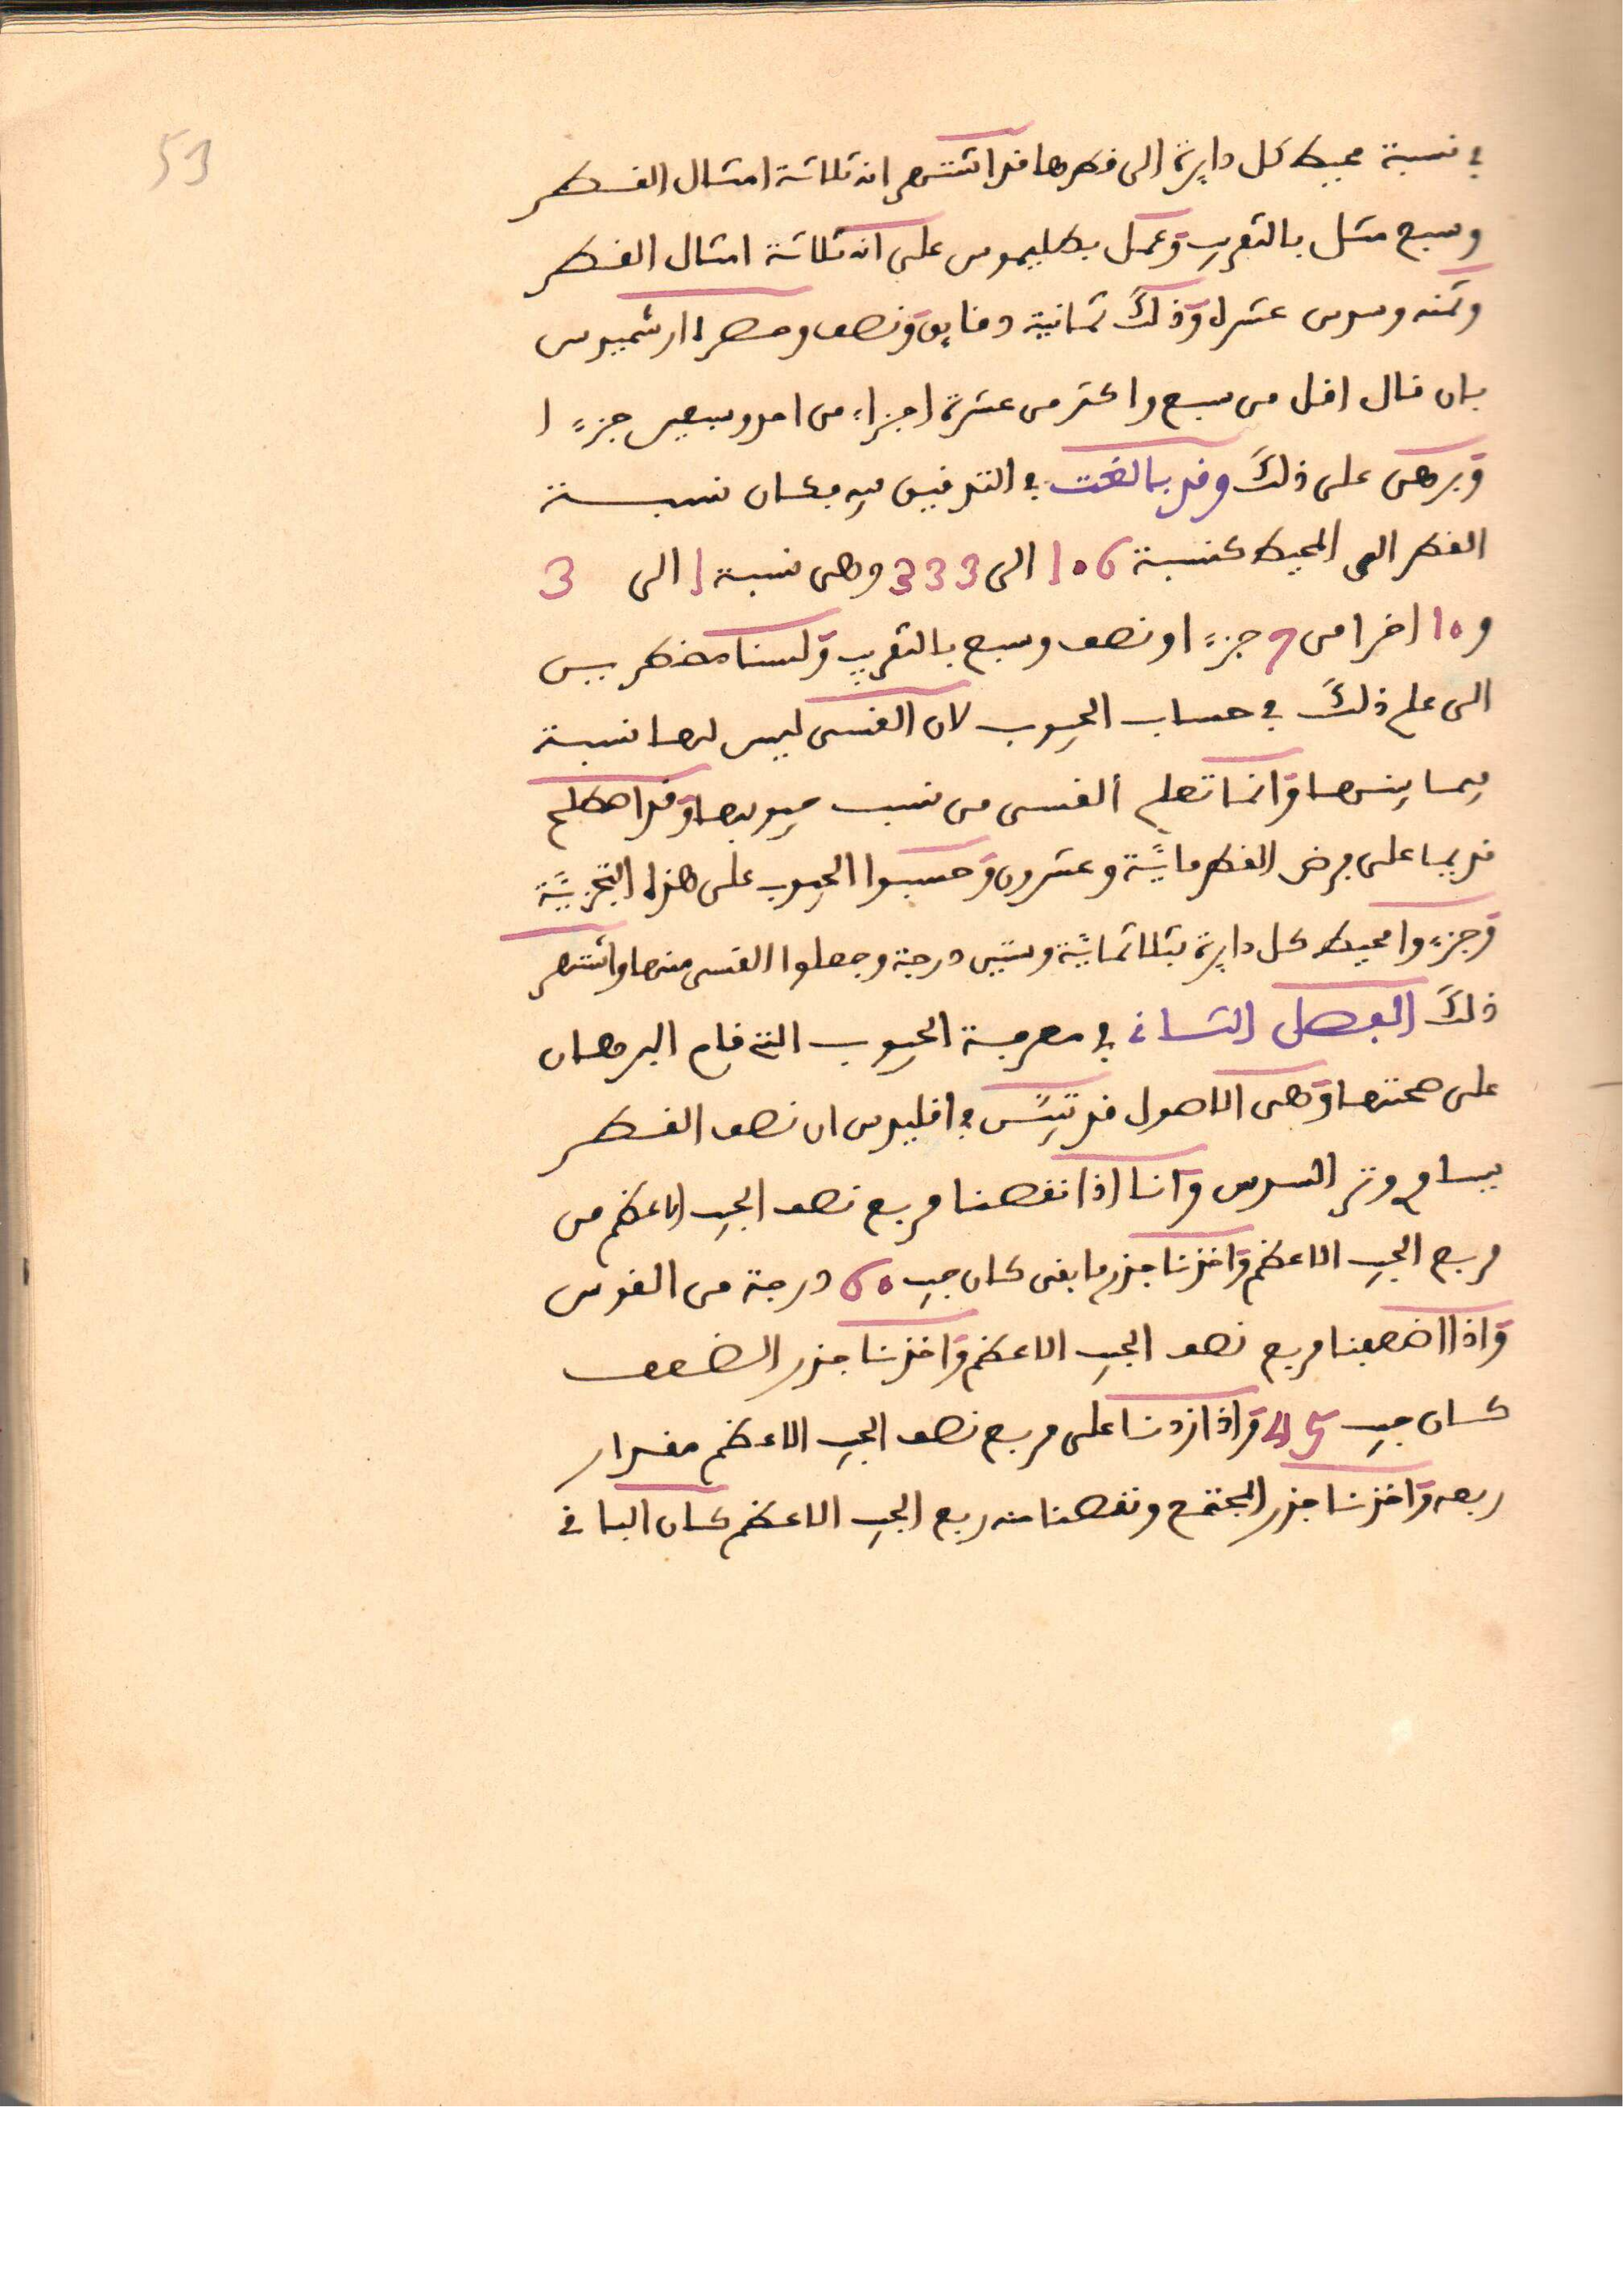 53
في نسبة محيط كل دايرة الى قطرها قد اشتهر انه ثلاثة امثال القطر
وسبع مثل بالتقريب وعمل بطليموس على انه ثلاثة امثال القطر
وثمنه وسدس عشره وذلك ثمانية دقايق ونصف وحصره ارشميدس
بان قال اقل من سبع واكثر من عشرة اجزاء من احد وسبعين جزءا
وبرهن على ذلك وقد بالغت في التدقيق فيه فكان نسبة
القطر الى المحيط كنسبة 106 الى 333 وهى نسبة 1 الى 3
و10 اخرا من 7 جزءا ونصف وسبع بالتقريب ولسنا مضطريين
الى علم ذلك في حساب الجيوب لان القسى ليس لها نسبة
فيما بينها وانما تعلم القسى من نسب جيوبها وقد اصطلح
قديما على فرض القطر ماية وعشرون وحسبوا الجيوب على هذه التجزية
وجزءوا محيط كل دايرة بثلاثماية وستين درجة وجعلوا القسى منها واشتهر
ذلك الفصل الثانى في معرفة الجيوب التى قام البرهان
على صحتها وهى الاصول قد تبين في اقليدس ان نصف القطر
يساوي وتر السدس وانا اذا نقصنا مربع نصف الجيب الاعظم من
مربع الجيب الاعظم واخذنا جذر ما بقى كان جيب 60 درجة من القوس
واذا اضعفنا مربع نصف الجيب الاعظم واخذنا جذر الضعف
كان جيب 45 واذا زدنا على مربع نصف الجيب الاعظم مقدار
ربعه واخذنا جذر المجتمع ونقصنا منه ربع الجيب الاعظم كان الباقى